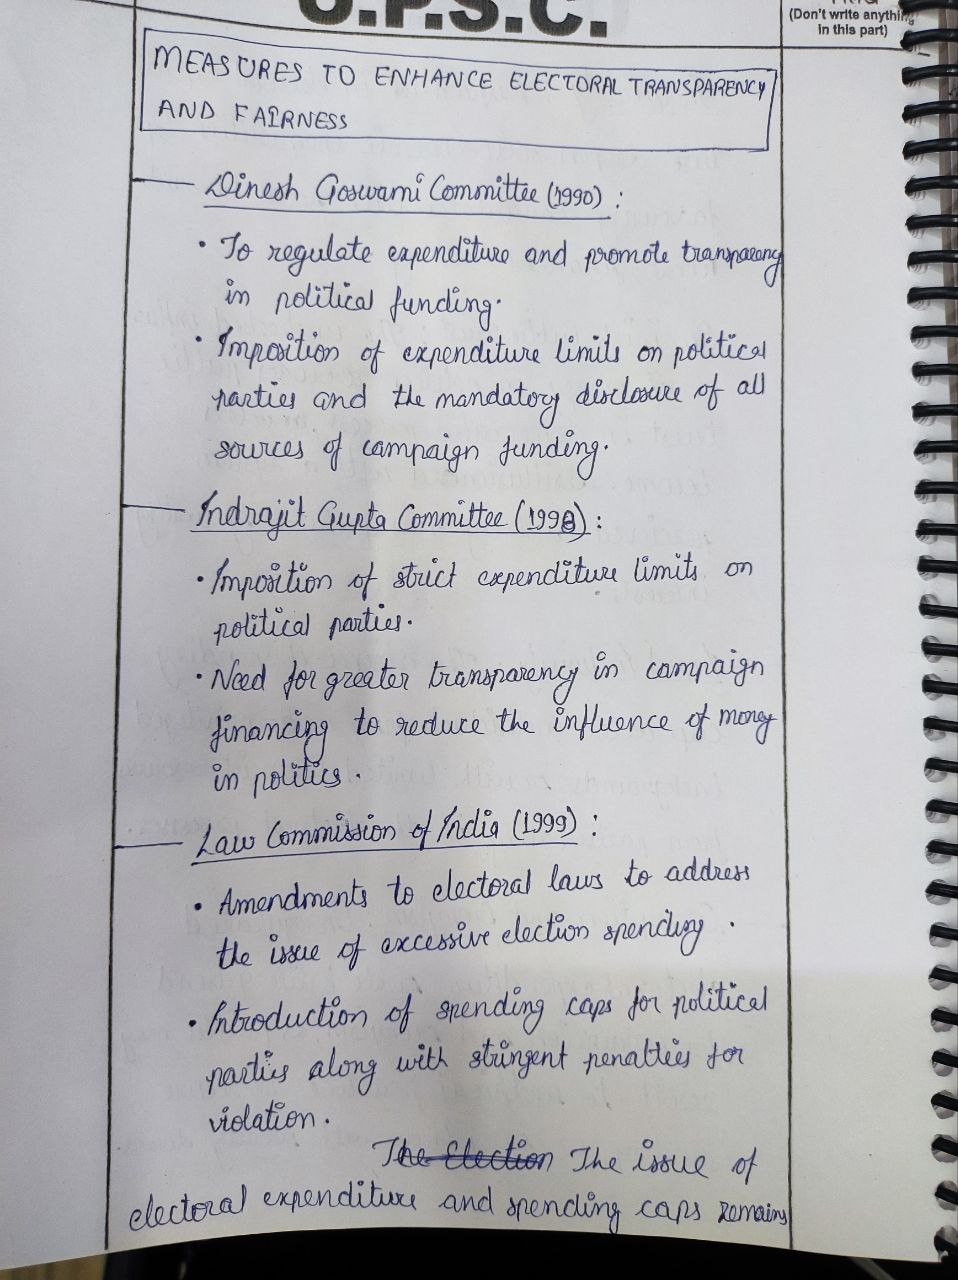 U.P.S.C.
(Don't write anything
in this part)
MEASURES TO ENHANCE ELECTORAL TRANSPARENCY
AND FAIRNESS
Dinesh Goswami Committee (1990) :
• To regulate expenditure and promote transparency
in political funding.
• Imposition of expenditure limits on political
parties and the mandatory disclosure of all
sources of campaign funding.
Indrajit Gupta Committee (1998) :
• Imposition of strict expenditure limits on
political parties.
• Need for greater transparency in campaign
financing to reduce the influence of money
in politics.
Law Commission of India (1999) :
• Amendments to electoral laws to address
the issue of excessive election spending.
• Introduction of spending caps for political
parties along with stringent penalties for
violation.
The Election The issue of
electoral expenditure and spending caps remains